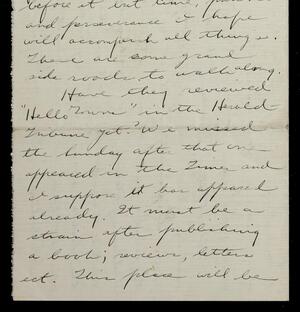 before it but time,
and perseverance I hope
will accomplish all things.
There are some grand
side roads, to walk along.
Have they reviewed
"Hello Towns" in the Herald-
Tribune yet? We missed
the Sunday after that one
appeared in the Times and
I suppose it has appeared
already. It must be a
strain after publishing
a book; reviews, letters
ect. This place will be